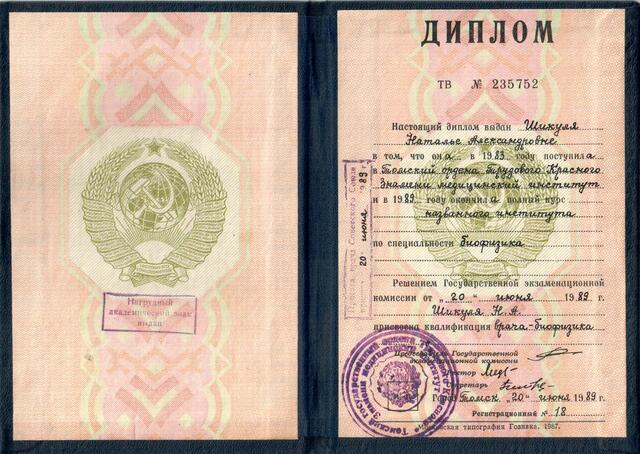 Нагрудный
академический знак
выдан
ДИПЛОМ
ТВ № 235752
Настоящий диплом выдан Шикуля
Наталье Александровне
в том, что она в 1983 году поступила
в Томский ордена Трудового Красного
Знамени медицинский институт
и в 1989 году окончила полный курс
названного института
по специальности биофизика
Решением Государственной экзаменационной
комиссии от „20“ июня 1989 г.
Шикуля Н. А.
присвоена квалификация врача-биофизика
Председатель Государственной
экзаменационной комиссии
Ректор
Секретарь
Город Томск „20“ июня 1989 г.
Регистрационный № 18
Московская типография Гознака. 1987.
Советского Союза
20 июня 1989 г.